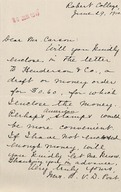 Robert College
June 29, 190
Dear Mr. Carson
Will you kindly
enclose in the letter
to Henderson & Co., a
draft or money order
for $1.60, for which
I enclose the money.
Perhaps American stamps would
be more convenient.
If I have not enclosed
enough money, will
you kindly let me know.
Thanking you in advance,
Very truly yours,
Geo. H. V. D. Post